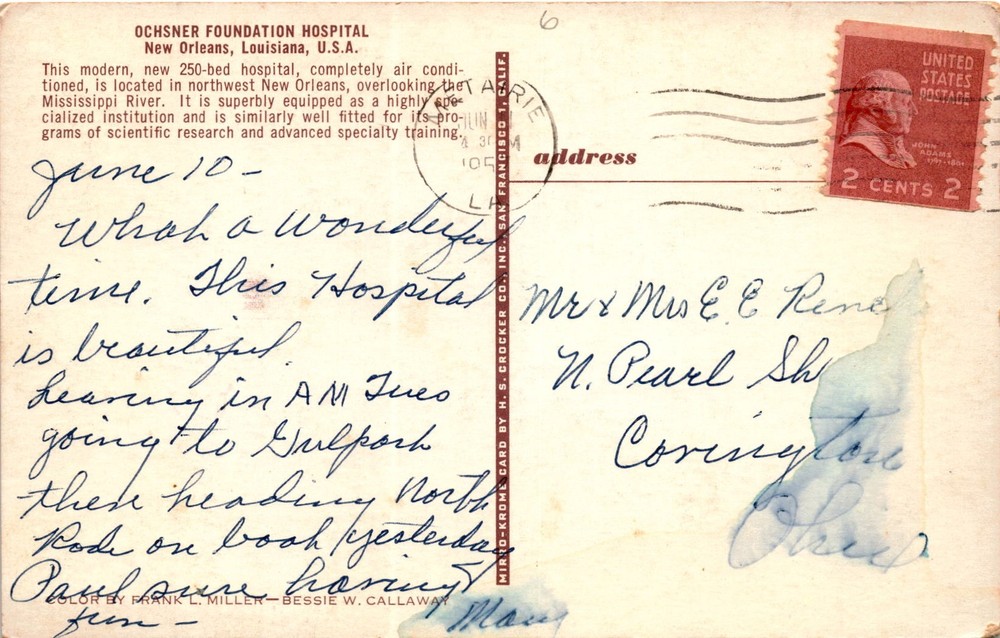 OCHSNER FOUNDATION HOSPITAL
New Orleans, Louisiana, U.S.A.
This modern, new 250-bed hospital, completely air condi-
tioned, is located in northwest New Orleans, overlooking the
Mississippi River. It is superbly equipped as a highly spe-
cialized institution and is similarly well fitted for its pro-
grams of scientific research and advanced specialty training.
June 10 -
What a wonderful
time. This Hospital
is beautiful.
Leaving in AM Tues
going to Gulfport
then heading North
Rode on boat yesterday
Paul sure having
fun -
Mary
COLOR BY FRANK L. MILLER—BESSIE W. CALLAWAY
MIRRO-KROME CARD BY H. S. CROCKER CO., INC. SAN FRANCISCO 1, CALIF.
6
METAIRIE
JUN
30 PM
LA
UNITED
STATES
POSTAGE
JOHN
ADAMS
1797-1801
2 CENTS 2
address
Mr & Mrs E. E.
N. Pearl St
Covington
Ohio